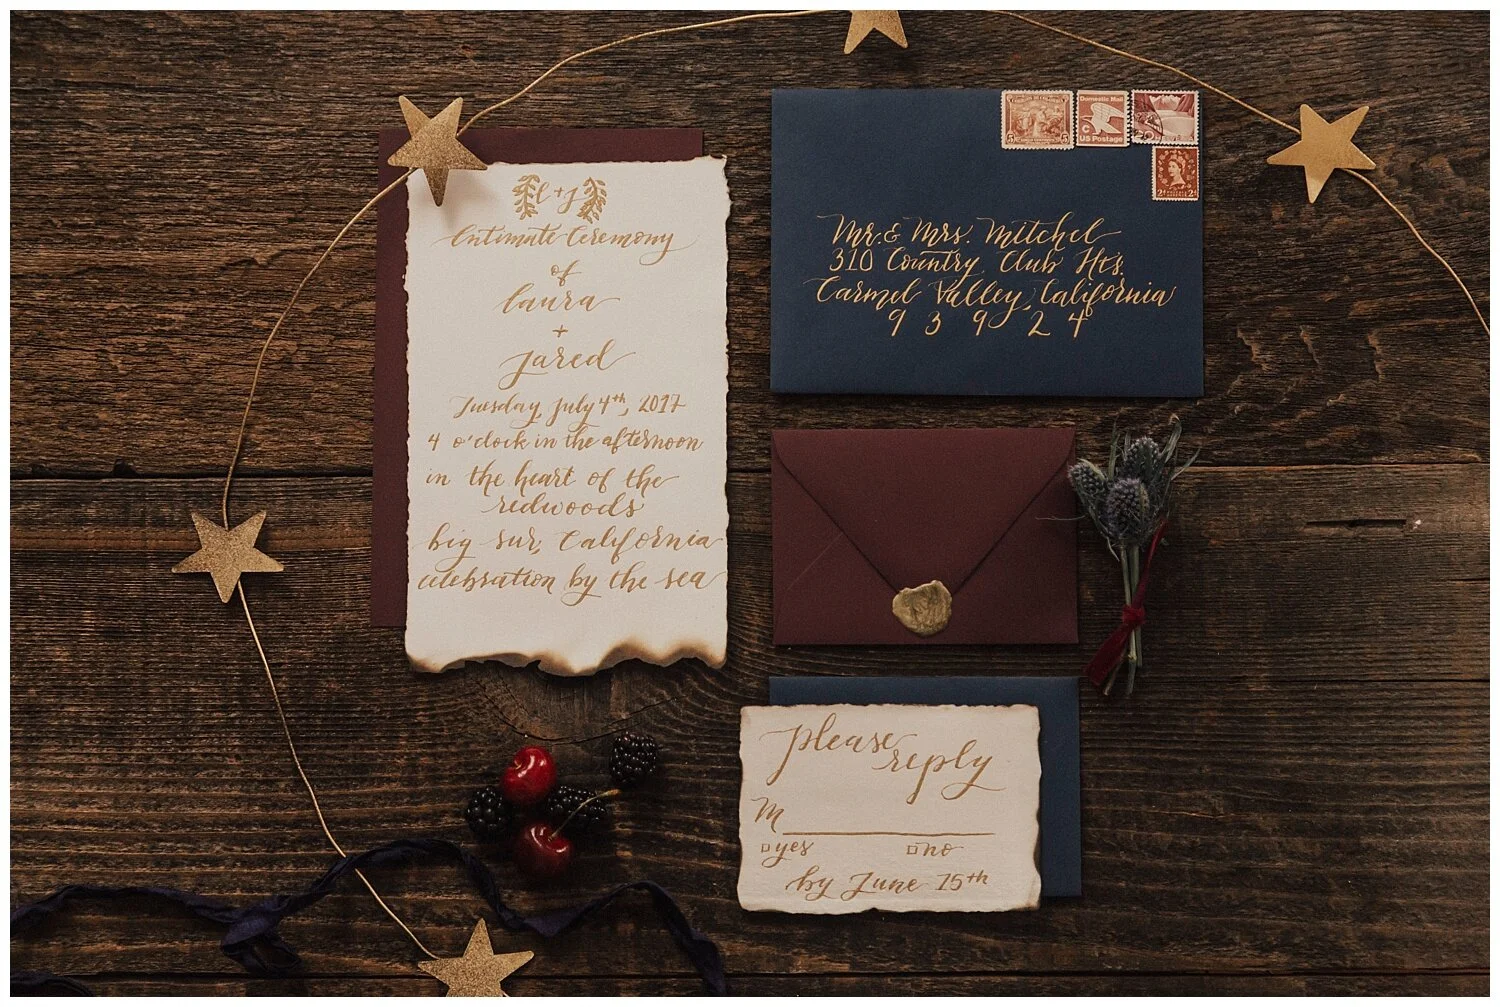 L + J
Intimate Ceremony
of
Laura
+
Jared
Tuesday, July 4th, 2017
4 o'clock in the afternoon
in the heart of the
redwoods
big sur, California
celebration by the sea
Domestic Mail
C
US Postage
5
5
2d
2d
Mr. & Mrs. Mitchel
310 Country Club Hts.
Carmel Valley, California
9 3 9 2 4
please
reply
M
yes no
by June 15th